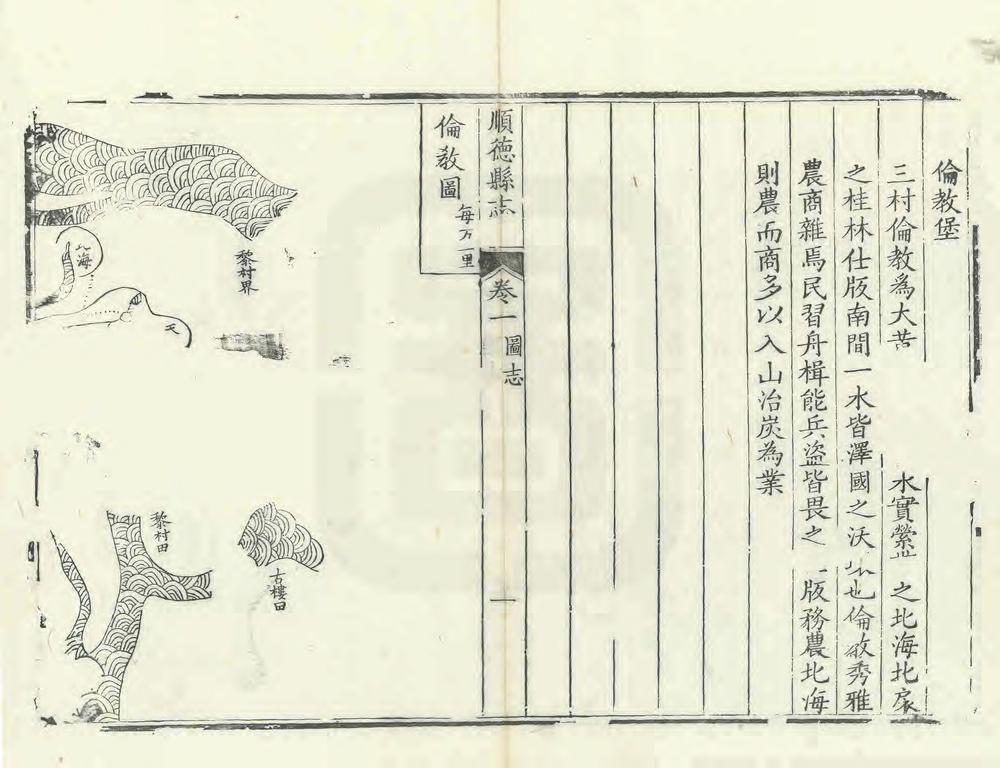 倫教堡
三村倫教爲大 水實縈 之北海北
之桂林仕版南間一水皆澤國之沃 也倫教秀雅
農商雜焉民習舟楫能兵盜皆畏之 版務農北海
則農而商多以入山治炭為業
順德縣志 卷一 圖志 一
倫教圖 每方一里
黎村界
北海
天
古樓田
黎村田